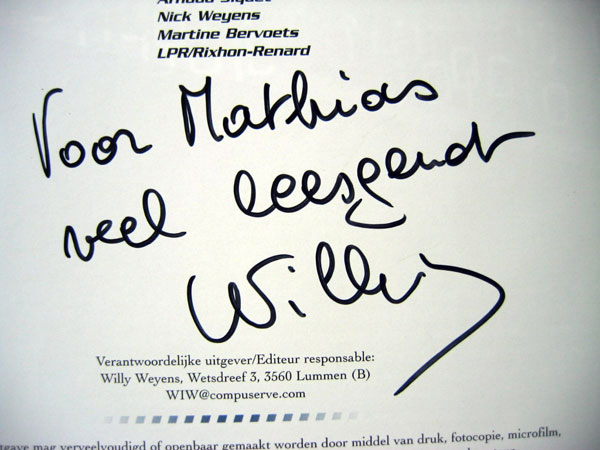 Nick Weyens
Martine Bervoets
LPR/Rixhon-Renard
Voor Mathias
veel leesgenot
Willy
Verantwoordelijke uitgever/Editeur responsable:
Willy Weyens, Wetsdreef 3, 3560 Lummen (B)
WIW@compuserve.com
mag verveelvoudigd of openbaar gemaakt worden door middel van druk, fotocopie, microfilm,